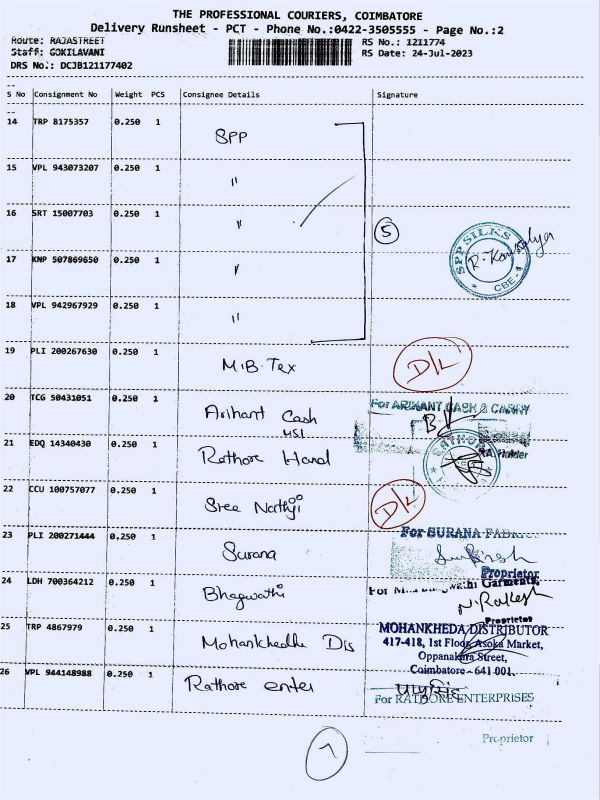 THE PROFESSIONAL COURIERS, COIMBATORE
Delivery Runsheet - PCT - Phone No.:0422-3505555 - Page No.:2
Route: RAJASTREET RS No.: 1211774
Staff: GOKILAVANI RS Date: 24-Jul-2023
DRS No.: DCJB121177402
S No Consignment No Weight PCS Consignee Details Signature
14 TRP 8175357 0.250 1 SPP
15 VPL 943073207 0.250 1 "
16 SRT 15007703 0.250 1 " 5
SPP SILKS
CBE-1
17 KNP 507869650 0.250 1 "
18 VPL 942967929 0.250 1 "
19 PLI 200267630 0.250 1 M.B. Tex D/L
20 TCG 50431051 0.250 1 Arihant Cash For ARIHANT CASH & CARRY
21 EDQ 14340430 0.250 1 Rathore Hand
22 CCU 100757077 0.250 1 Sree Nathji D/L
23 PLI 200271444 0.250 1 Surana For SURANA
Proprietor
24 LDH 700364212 0.250 1 Bhagwathi Garments,
N. Rakesh
Proprietor
25 TRP 4867979 0.250 1 Mohankhedha Dis MOHANKHEDA DISTRIBUTOR
417-418, 1st Floor, Asoka Market,
Oppanakara Street,
Coimbatore - 641 001.
26 VPL 944148988 0.250 1 Rathore enter
For RATHORE ENTERPRISES
Proprietor
7